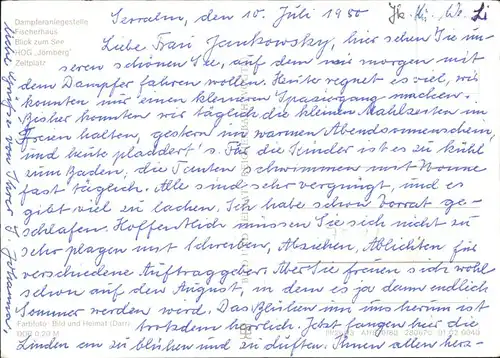 Serrahn, den 10. Juli 1980
Dampferanlegestelle
Fischerhaus
Blick zum See
HOG „Jörnberg"
Zeltplatz
Liebe Frau Jankowsky, hier sehen Sie un-
seren schönen See, auf dem wir morgen mit
dem Dampfer fahren wollen. Heute regnet es viel, wir
konnten nur einen kleineren Spaziergang machen.
Bisher konnten wir täglich die kleinen Mahlzeiten im
Freien halten, gestern im warmen Abendsonnenschein,
und heute pladdert's. Für die Kinder ist es zu kühl
zum Baden, die Tanten schwimmen mit Wonne
fast täglich. Alle sind sehr vergnügt, und es
gibt viel zu lachen. Ich habe schon Vorrat ge-
schlafen. Hoffentlich müssen Sie sich nicht zu
sehr plagen mit Schreiben, Abziehen, Ablichten für
verschiedene Auftraggeber. Aber Sie freuen sich wohl
schon auf den August, in dem es ja dann endlich
Sommer werden wird. Das Blühen um uns herum ist
trotzdem herrlich. Jetzt fangen hier die
Linden an zu blühen und zu duften. Ihnen allen herz-
liche Grüße von Ihrer
Farbfoto: Bild und Heimat (Darr)